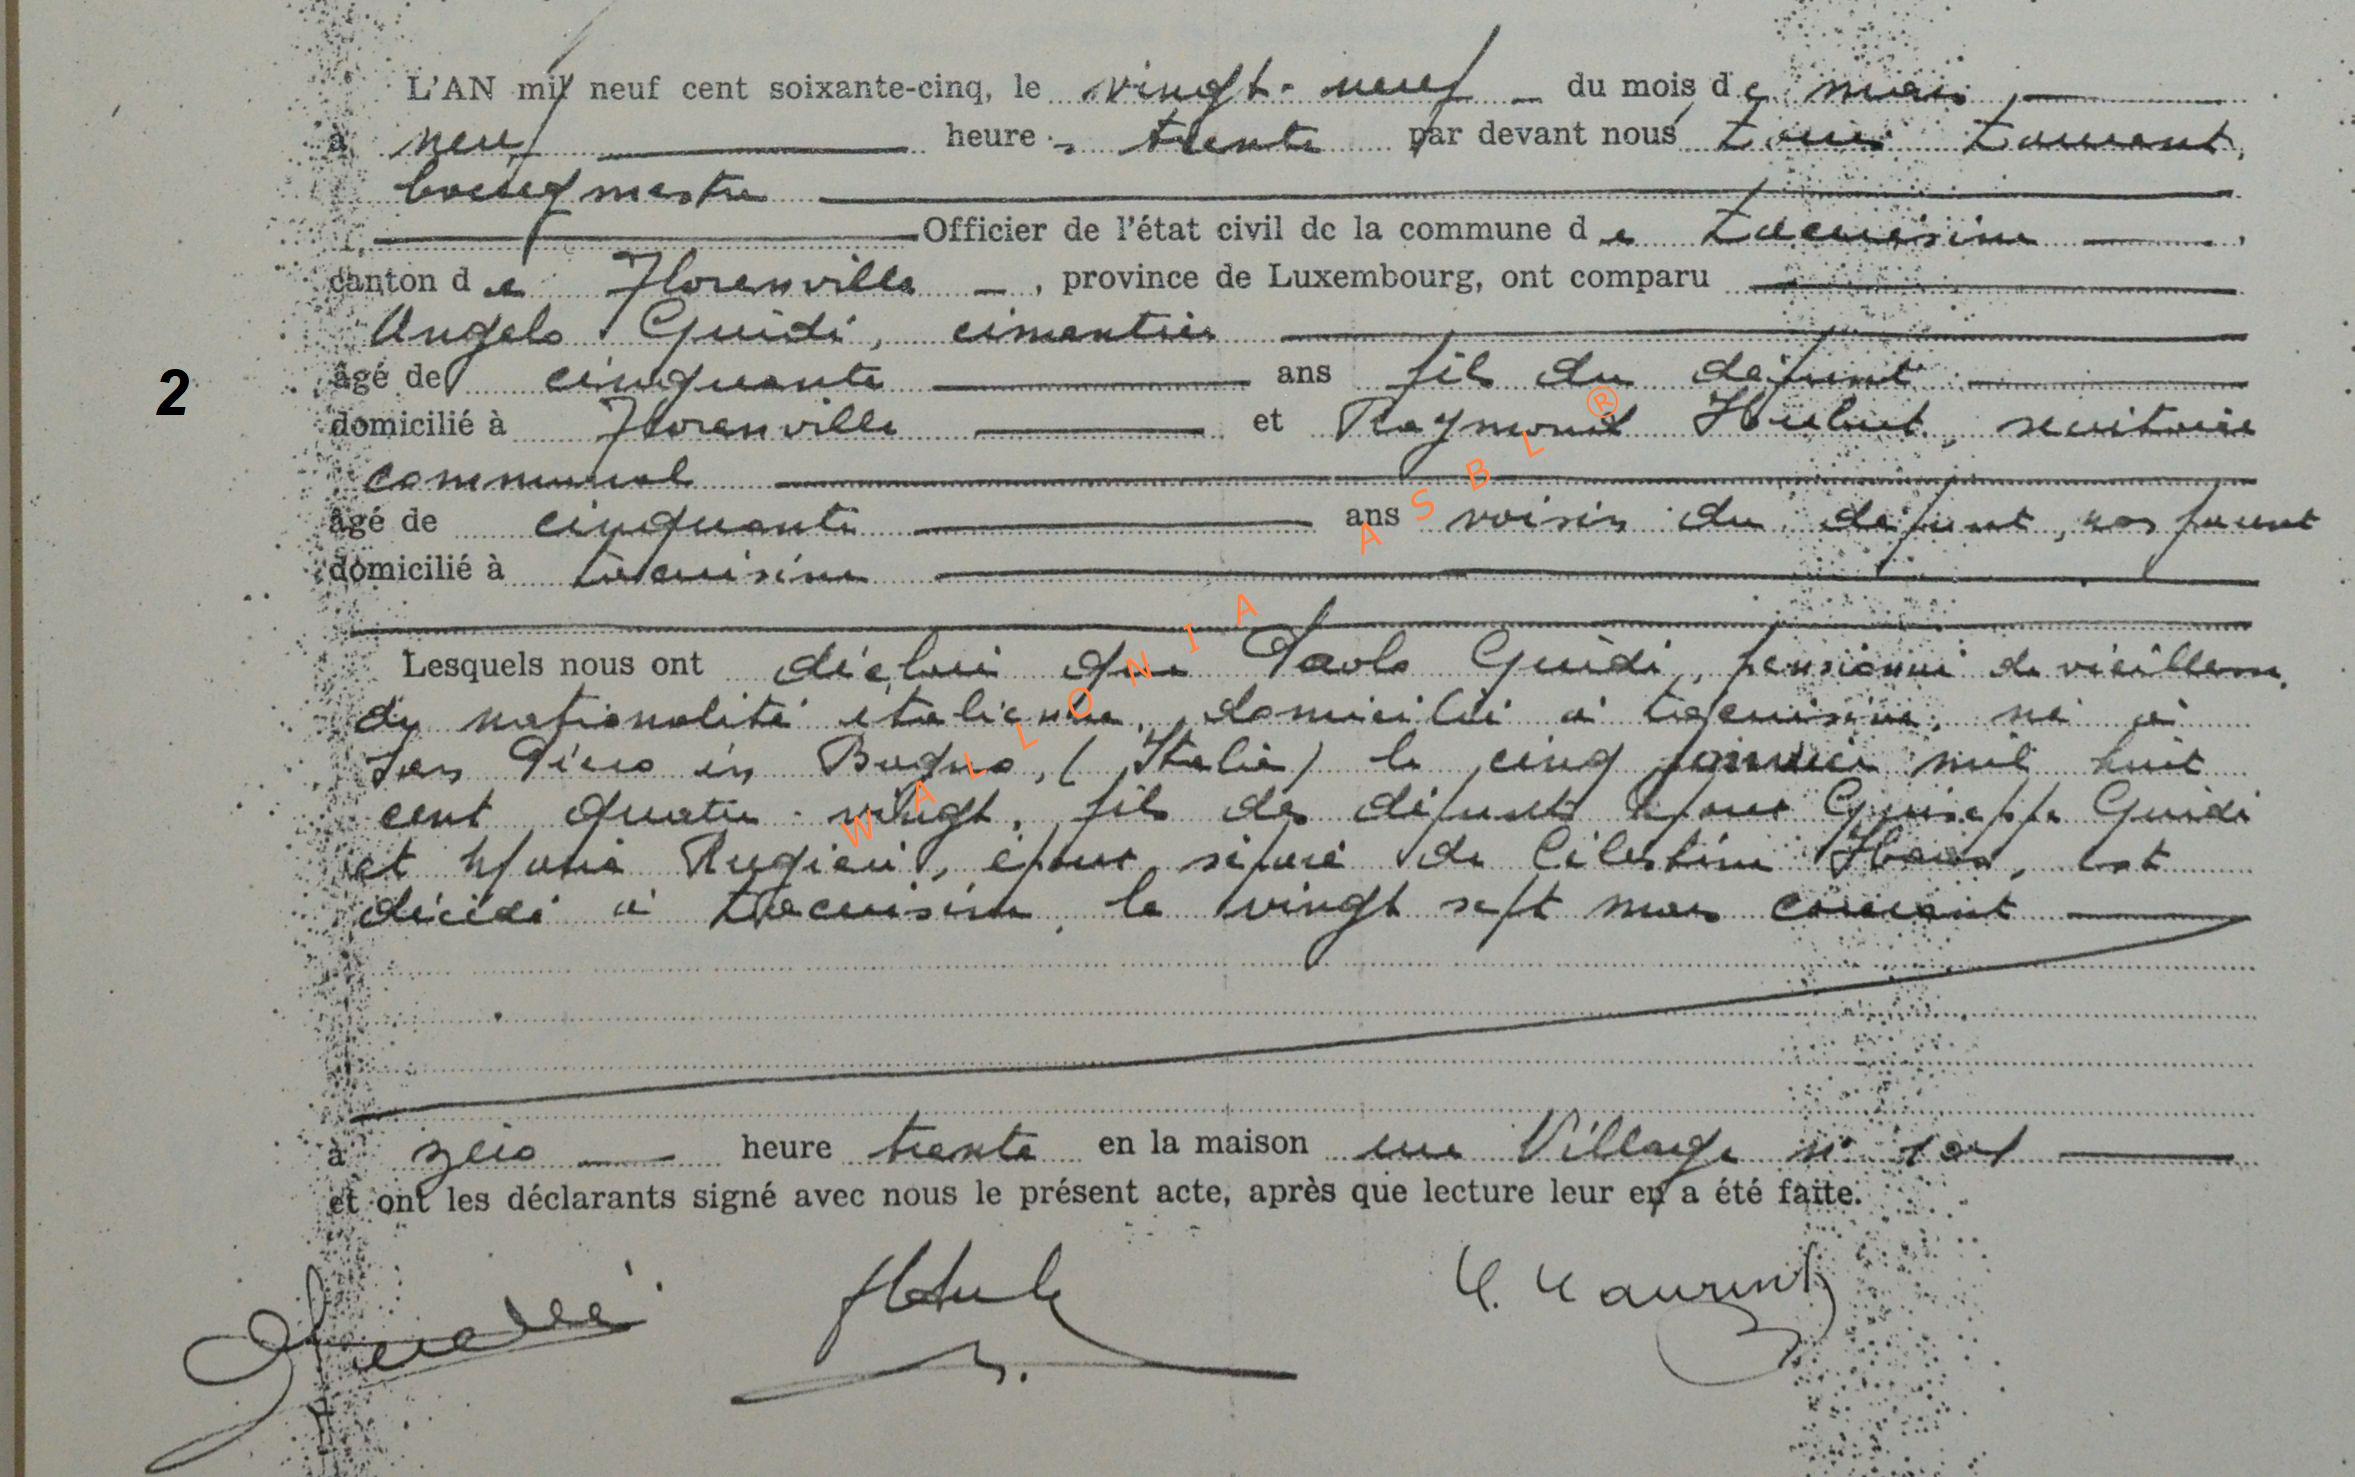 L'AN mil neuf cent soixante-cinq, le vingt-neuf du mois de mars
à neuf heures trente par devant nous Louis Laurent,
bourgmestre
Officier de l'état civil de la commune de Lacuisine,
canton de Florenville, province de Luxembourg, ont comparu
Angelo Guidi, cimentier
2
âgé de cinquante ans fils du défunt
domicilié à Florenville et Raymond Hubert, secrétaire
communal
âgé de cinquante ans voisin du défunt, non parent
domicilié à Lacuisine
Lesquels nous ont déclaré que Paolo Guidi, pensionné de vieillesse,
de nationalité italienne, domicilié à Lacuisine, né à
San Piero in Bagno, (Italie) le cinq janvier mil huit
cent quatre-vingt, fils des défunts époux Guiseppe Guidi
et Rugieri, époux séparé de Célestine, est
décédé à Lacuisine, le vingt sept mars courant
à zéro heure trente en la maison rue Village n° 101
et ont les déclarants signé avec nous le présent acte, après que lecture leur en a été faite.
L. Laurent
WALLONIA ASBL ®